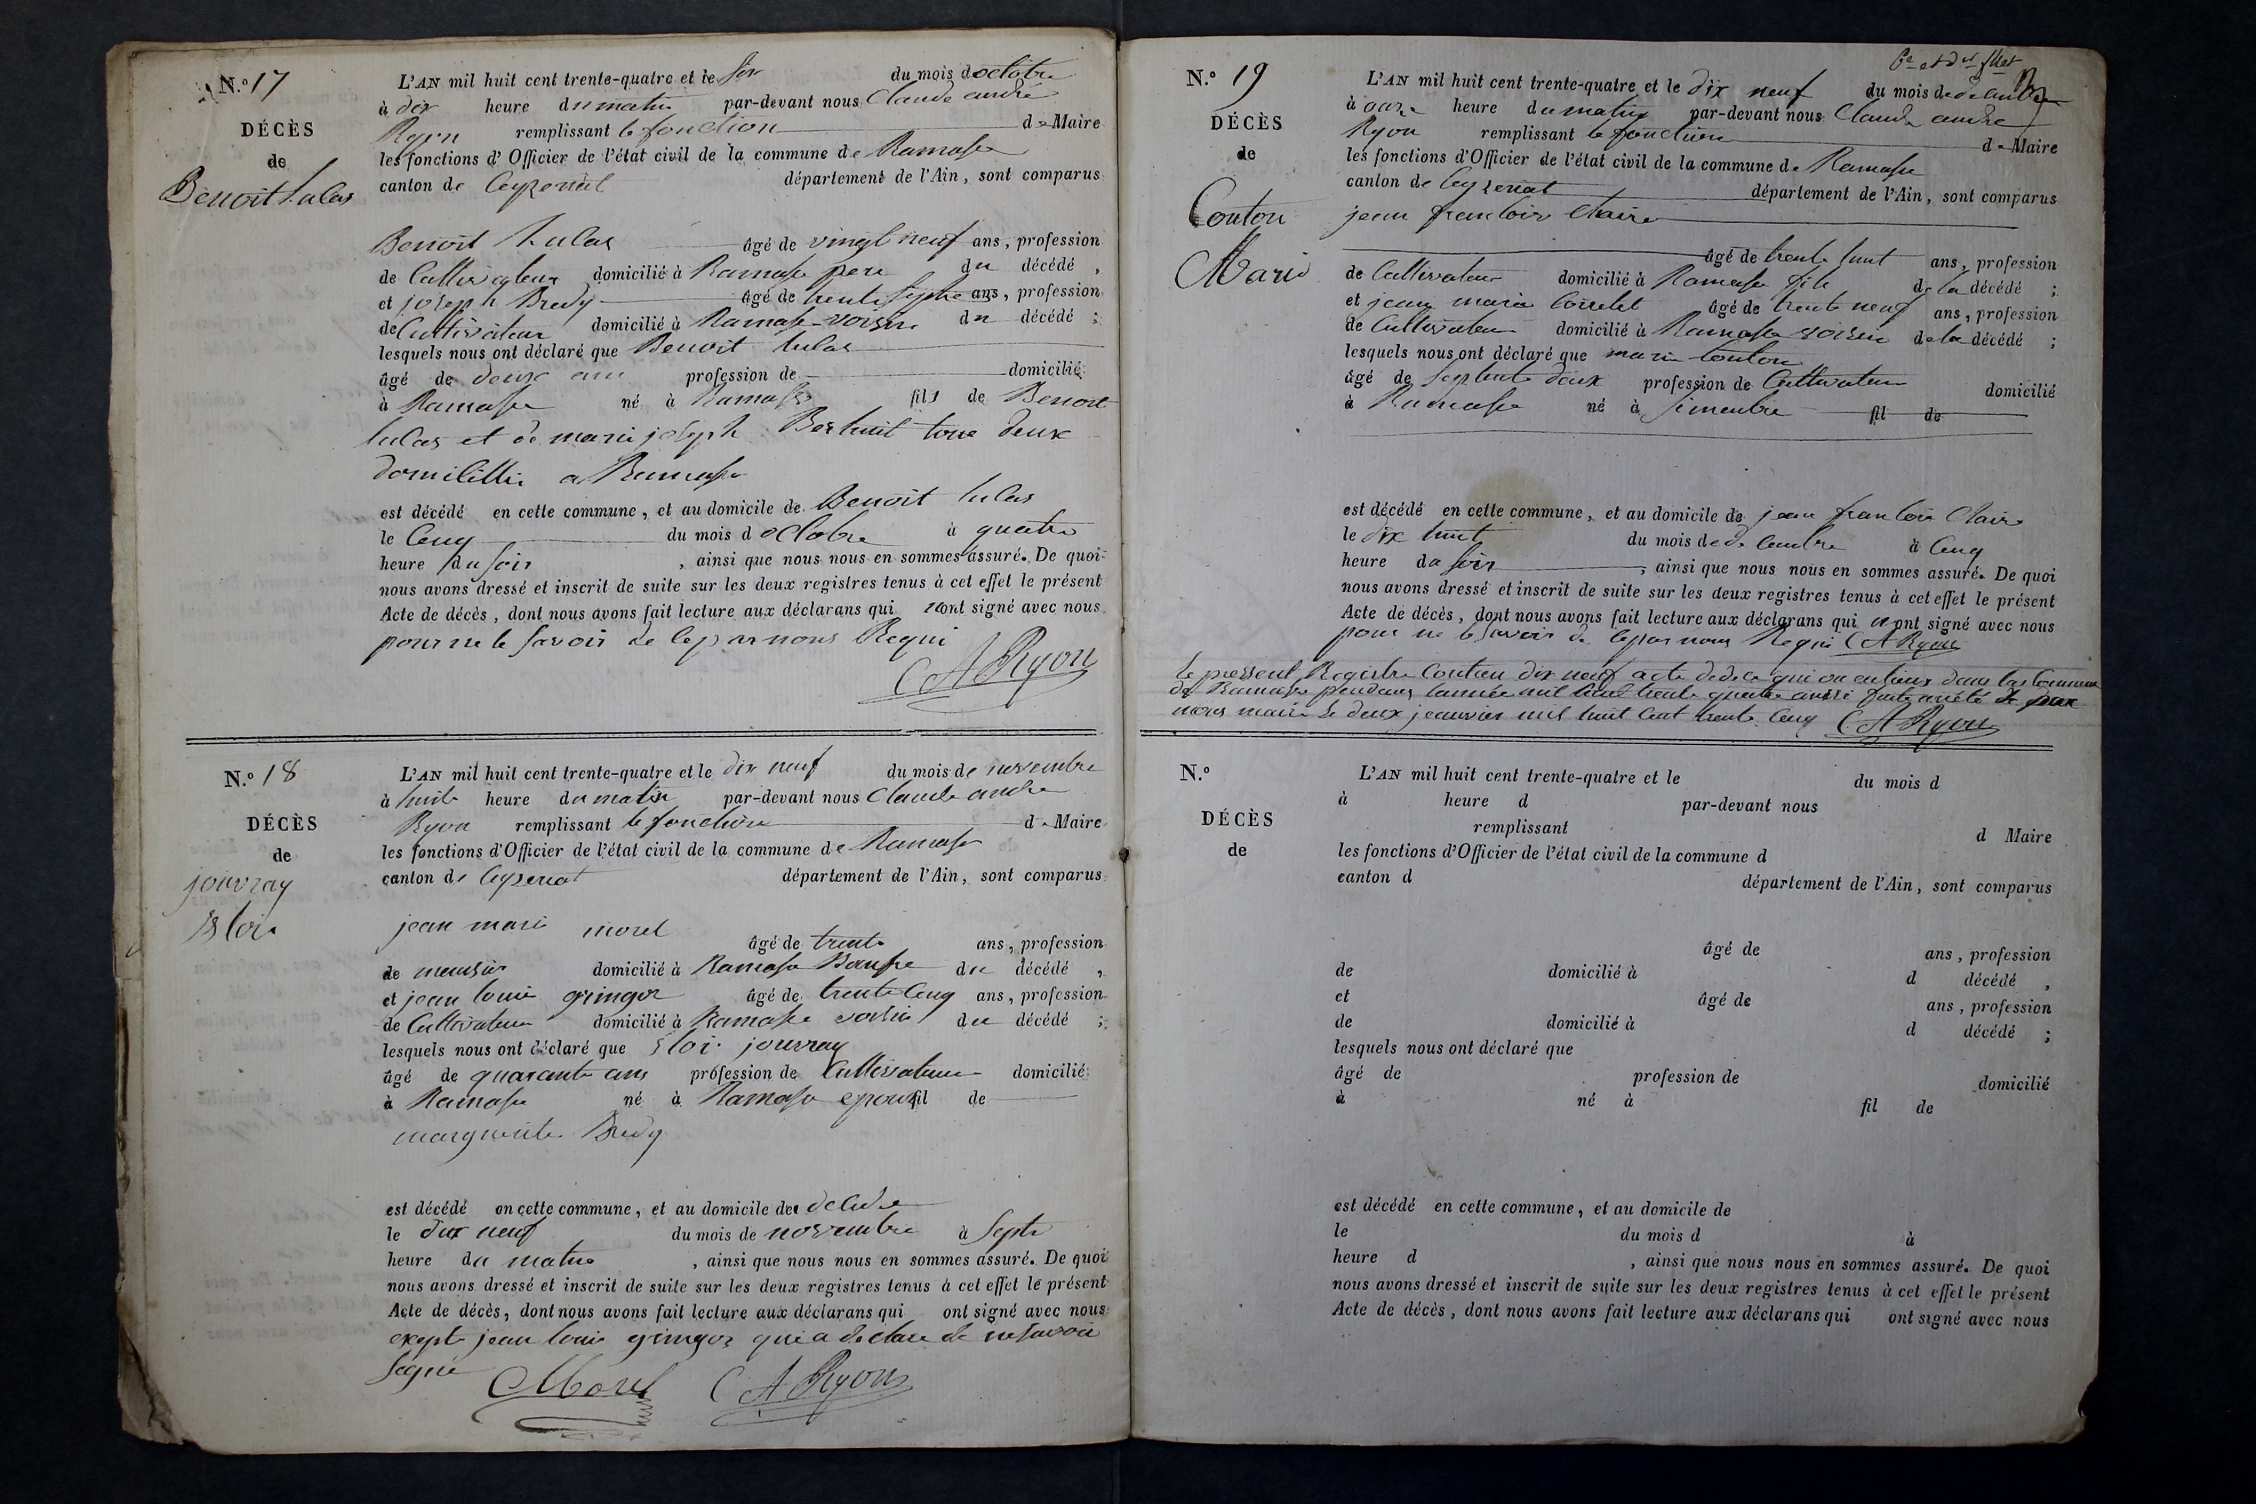 N.º 17
DÉCÈS
de
Benoit Lulas
L'AN mil huit cent trente-quatre et le six du mois doctobre
à dix heure du matin par-devant nous Claude andré
Ryon remplissant le fonction de Maire
les fonctions d'Officier de l'état civil de la commune de Ramasse
canton de Ceyzeriat département de l'Ain, sont comparus
Benoit Lulas âgé de vingt neuf ans, profession
de Cultivateur domicilié à Ramasse pere du décédé,
et joseph Bredy âgé de trente septe ans, profession
de Cultivateur domicilié à Ramasse voisin du décédé;
lesquels nous ont déclaré que Benoit Lulas
âgé de deux ans profession de domicilié
à Ramasse né à Ramasse fils de Benoit
Lulas et de marie joseph tous deux
domicillie a Ramasse
est décédé en cette commune, et au domicile de Benoit Lulas
le Cenq du mois d octobre à quatre
heure du soir, ainsi que nous nous en sommes assuré. De quoi
nous avons dressé et inscrit de suite sur les deux registres tenus à cet effet le présent
Acte de décès, dont nous avons fait lecture aux déclarans qui nont signé avec nous
pour ne le savoir de ce par nous Requi
CA Ryon
N.º 18
DÉCÈS
de
jouvray
Eloi
L'AN mil huit cent trente-quatre et le dix neuf du mois de novembre
à huit heure du matin par-devant nous Claude andre
Ryon remplissant le fonction de Maire
les fonctions d'Officier de l'état civil de la commune de Ramasse
canton de Ceyzeriat département de l'Ain, sont comparus
jean marie morel âgé de trente ans, profession
de domicilié à Ramasse du décédé,
et jean louis gringoz âgé de trente Cenq ans, profession
de Cultivateur domicilié à Ramasse voisin du décédé;
lesquels nous ont déclaré que Eloi jouvray
âgé de quarante ans profession de Cultivateur domicilié
à Ramasse né à Ramasse epoux fil de
marguerite Bredy
est décédé en cette commune, et au domicile de
le dix neuf du mois de novembre à Septe
heure du matin, ainsi que nous nous en sommes assuré. De quoi
nous avons dressé et inscrit de suite sur les deux registres tenus à cet effet le présent
Acte de décès, dont nous avons fait lecture aux déclarans qui ont signé avec nous
exepte jean louis gringoz qui a declare de ne savoir
Segné Morel CA Ryon
N.º 19
DÉCÈS
de
Conton
Marie
L'AN mil huit cent trente-quatre et le dix neuf du mois de
à onze heure du matin par-devant nous Claude andre
Ryon remplissant le fonction de Maire
les fonctions d'Officier de l'état civil de la commune de Ramasse
canton de Ceyzeriat département de l'Ain, sont comparus
jean francois Claire
âgé de trente huit ans, profession
de Cultivateur domicilié à Ramasse fils de la décédé;
et jean marie âgé de trente neuf ans, profession
de Cultivateur domicilié à Ramasse voisin de la décédé;
lesquels nous ont déclaré que marie Conton
âgé de Septente deux profession de Cultivateur domicilié
à Ramasse né à Simendre fil de
est décédé en cette commune, et au domicile de jean francois Claire
le dix huit du mois de decembre à Cenq
heure du soir, ainsi que nous nous en sommes assuré. De quoi
nous avons dressé et inscrit de suite sur les deux registres tenus à cet effet le présent
Acte de décès, dont nous avons fait lecture aux déclarans qui n ont signé avec nous
pour ne le savoir de ce par nous Requi CA Ryon
le pressent Registre Contien dix neuf acte dedece qui on eu lieux dans la Commune
de Ramasse pendans lannée mil huit trente quatre par
nous maire le deux jeanvier mil huit Cent trente Cenq CA Ryon
N.º
DÉCÈS
de
L'AN mil huit cent trente-quatre et le du mois d
à heure d par-devant nous
remplissant d Maire
les fonctions d'Officier de l'état civil de la commune d
canton d département de l'Ain, sont comparus
âgé de ans, profession
de domicilié à d décédé,
et âgé de ans, profession
de domicilié à d décédé;
lesquels nous ont déclaré que
âgé de profession de domicilié
à né à fil de
est décédé en cette commune, et au domicile de
le du mois d à
heure d, ainsi que nous nous en sommes assuré. De quoi
nous avons dressé et inscrit de suite sur les deux registres tenus à cet effet le présent
Acte de décès, dont nous avons fait lecture aux déclarans qui ont signé avec nous